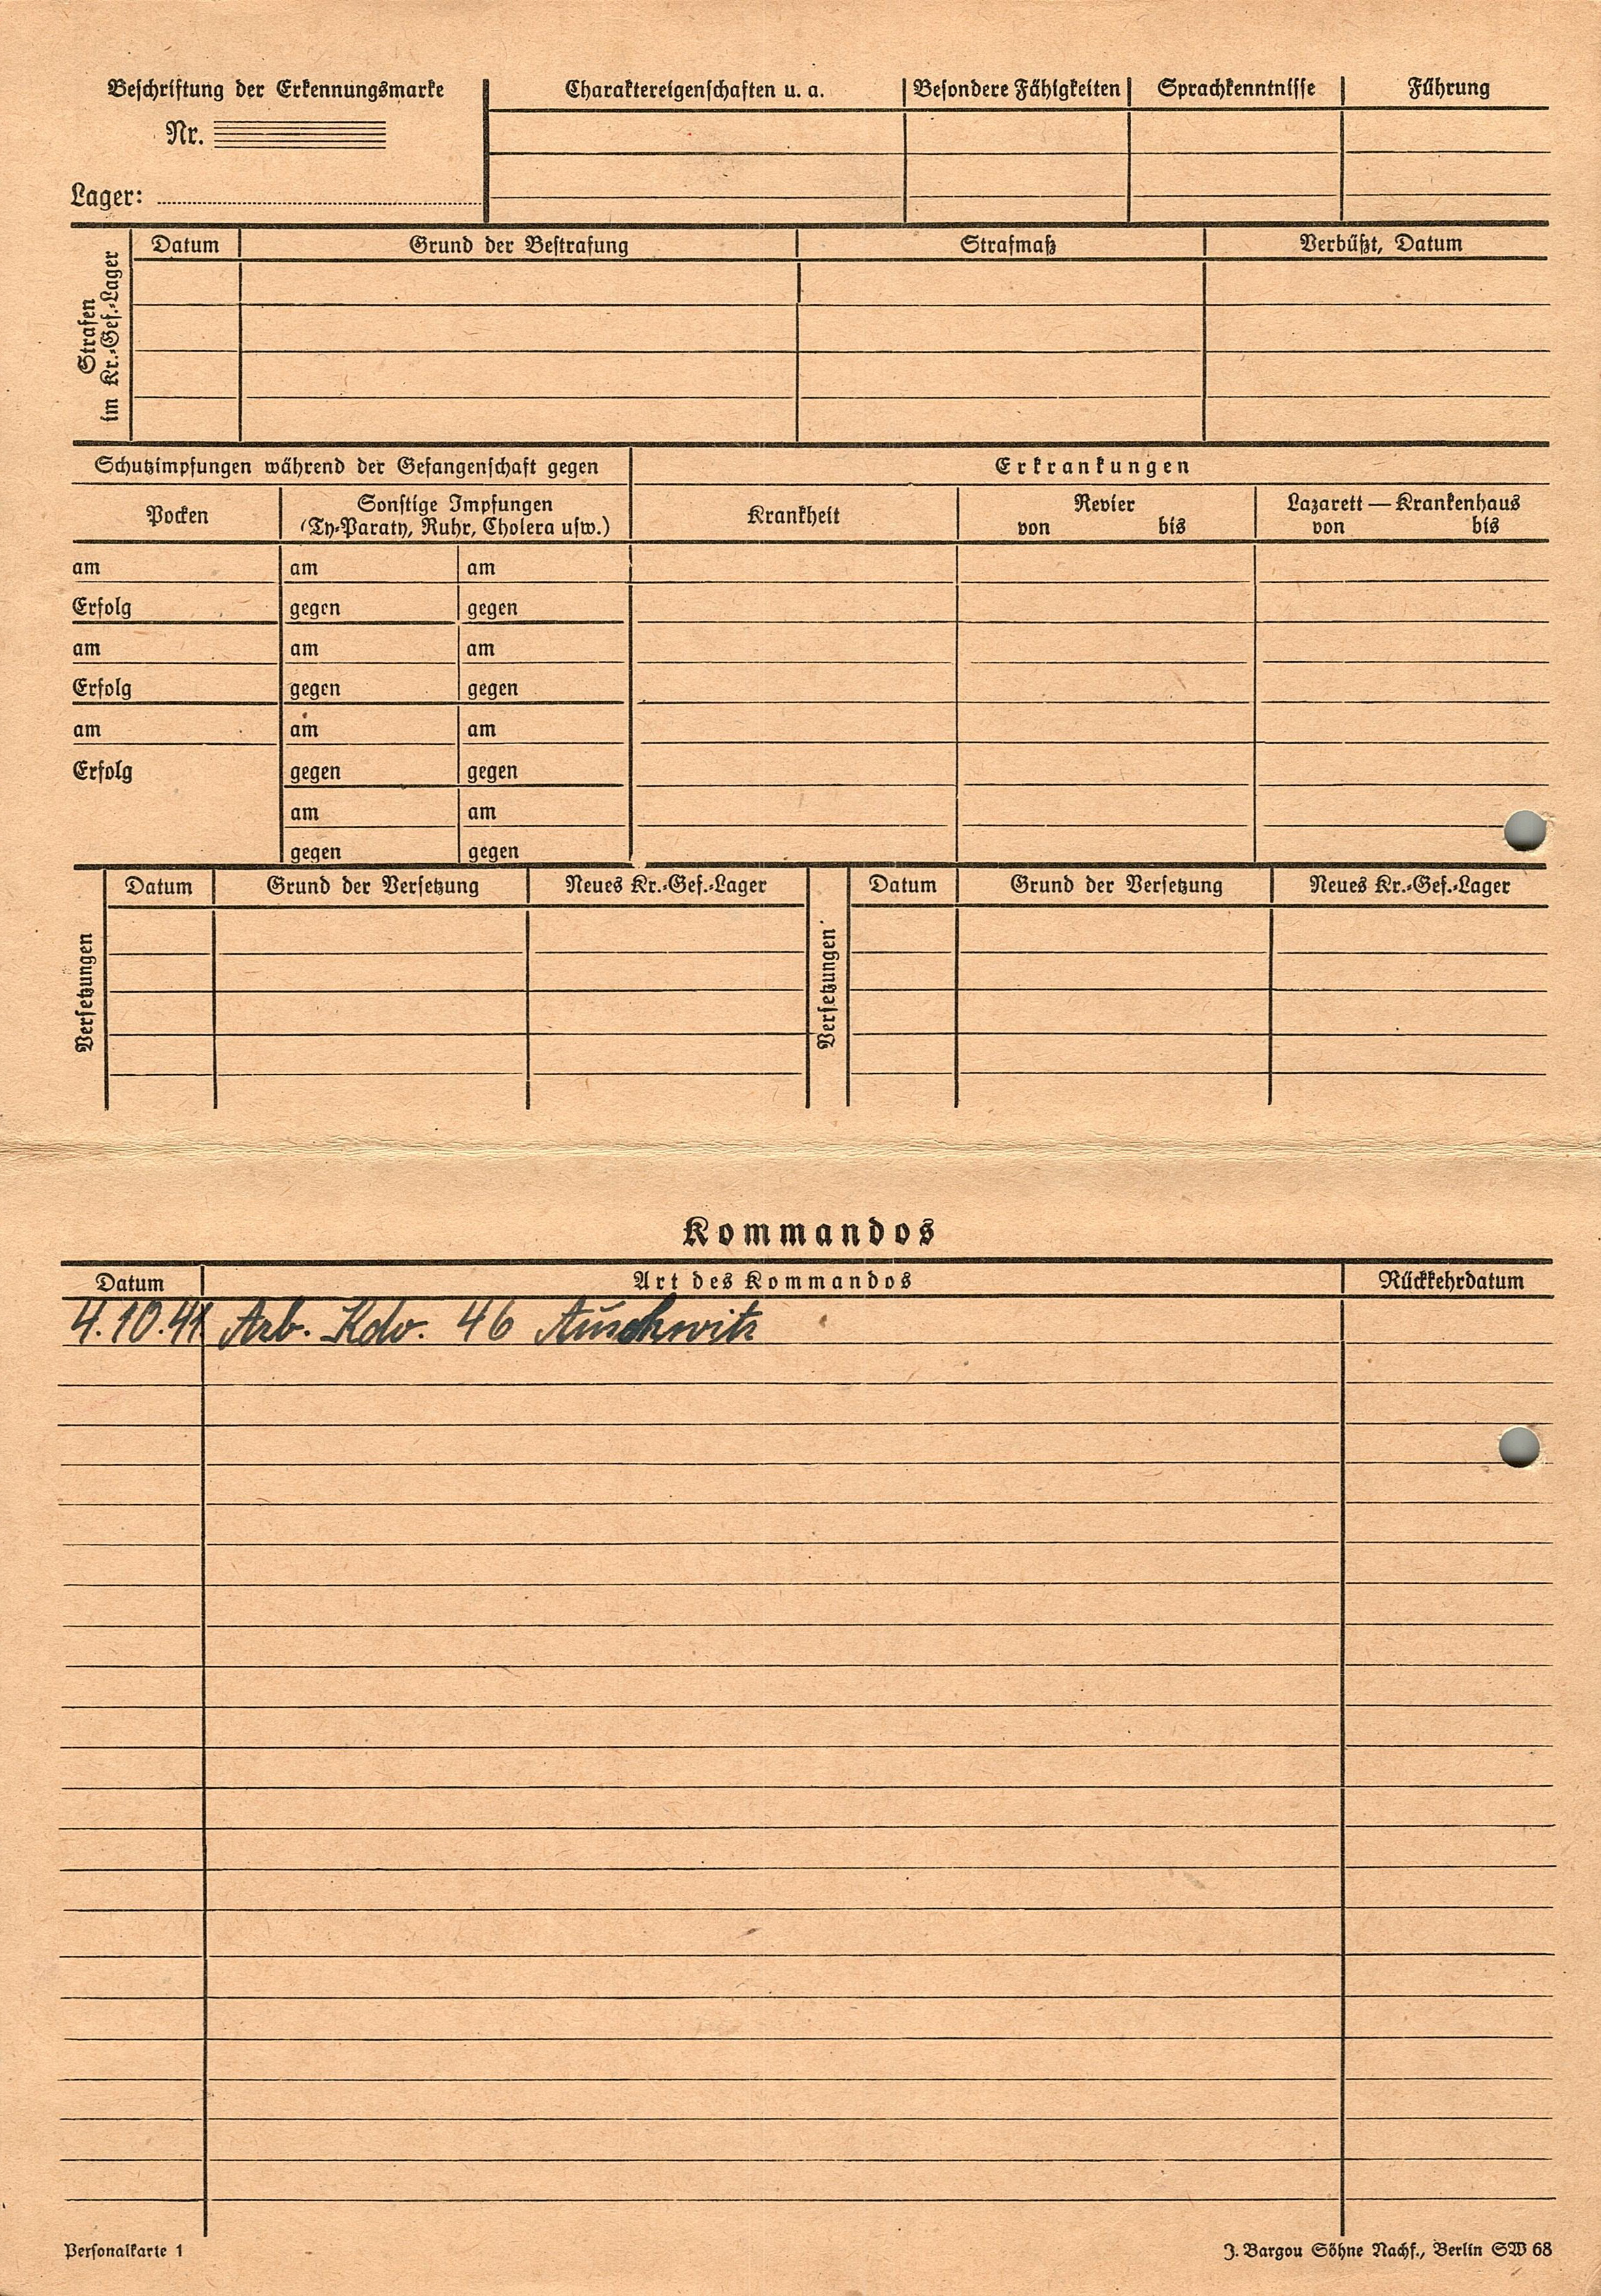 Beschriftung der Erkennungsmarke
Nr.
Lager:
Charaktereigenschaften u. a.
Besondere Fähigkeiten
Sprachkenntnisse
Führung
Strafen
im Kr.-Gef.-Lager
Datum
Grund der Bestrafung
Strafmaß
Verbüßt, Datum
Schutzimpfungen während der Gefangenschaft gegen
Erkrankungen
Pocken
Sonstige Impfungen
(Ty-Paraty, Ruhr, Cholera usw.)
Krankheit
Revier
von bis
Lazarett — Krankenhaus
von bis
am am am
Erfolg gegen gegen
am am am
Erfolg gegen gegen
am am am
Erfolg gegen gegen
am am
gegen gegen
Versetzungen
Datum
Grund der Versetzung
Neues Kr.-Gef.-Lager
Versetzungen
Datum
Grund der Versetzung
Neues Kr.-Gef.-Lager
Kommandos
Datum Art des Kommandos Rückkehrdatum
4.10.41 Arb. Kdo. 46 Auschwitz
Personalkarte 1
J. Bargou Söhne Nachf., Berlin SW 68